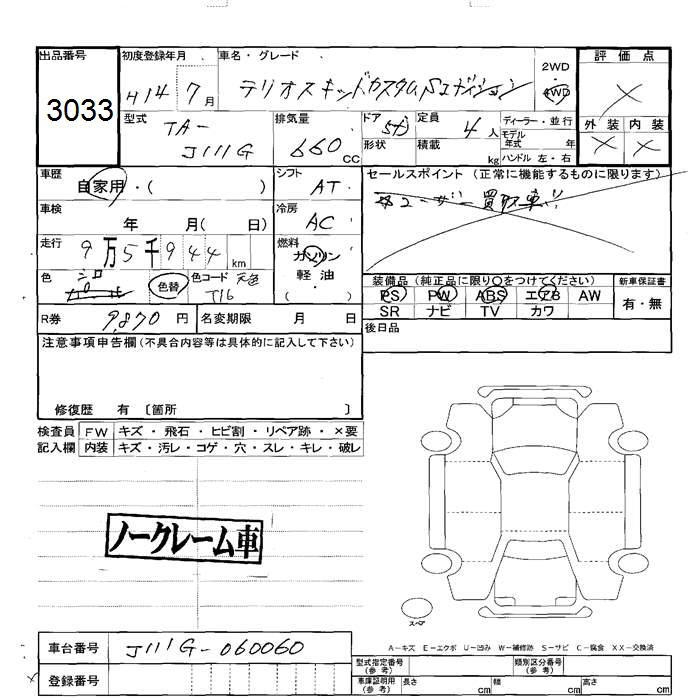 出品番号 初度登録年月 車名・グレード 2WD 評価点
3033 H14 7月 テリオスキッドカスタムSエディション 4WD ×
型式 排気量 ドア 定員 ディーラー・並行 外装 内装
TA- J111G 660cc 5d 4人 モデル年式 年 × ×
形状 積載 kg ハンドル 左・右
車歴 シフト セールスポイント(正常に機能するものに限ります)
自家用・( ) AT 買取車!!
車検 年 月( 日) 冷房 AC
走行 9万5千944km 燃料 ガソリン 軽油 ・( )
色 シロ 色替 色コード T16
装備品(純正品に限り○をつけてください) 新車保証書
PS PW ABS エアB AW 有・無
SR ナビ TV カワ
R券 9,870円 名変期限 月 日 後日品
注意事項申告欄(不具合内容等は具体的に記入して下さい)
修復歴 有〔箇所 〕
検査員 FW キズ・飛石・ヒビ割・リペア跡・×要
記入欄 内装 キズ・汚レ・コゲ・穴・スレ・キレ・破レ
ノークレーム車
スペア
A-キズ E-エクボ U-凹み W-補修跡 S-サビ C-腐食 XX-交換済
車台番号 J111G-060060
型式指定番号(参考) 類別区分番号(参考)
登録番号
車庫証明用(参考) 長さ cm 幅 cm 高さ cm